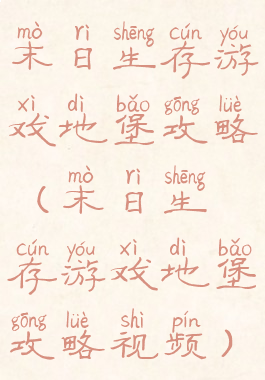 mò rì shēng cún yóu
末日生存游
xì dì bǎo gōng lüè
戏地堡攻略
mò rì shēng
（末日生
cún yóu xì dì bǎo
存游戏地堡
gōng lüè shì pín
攻略视频）